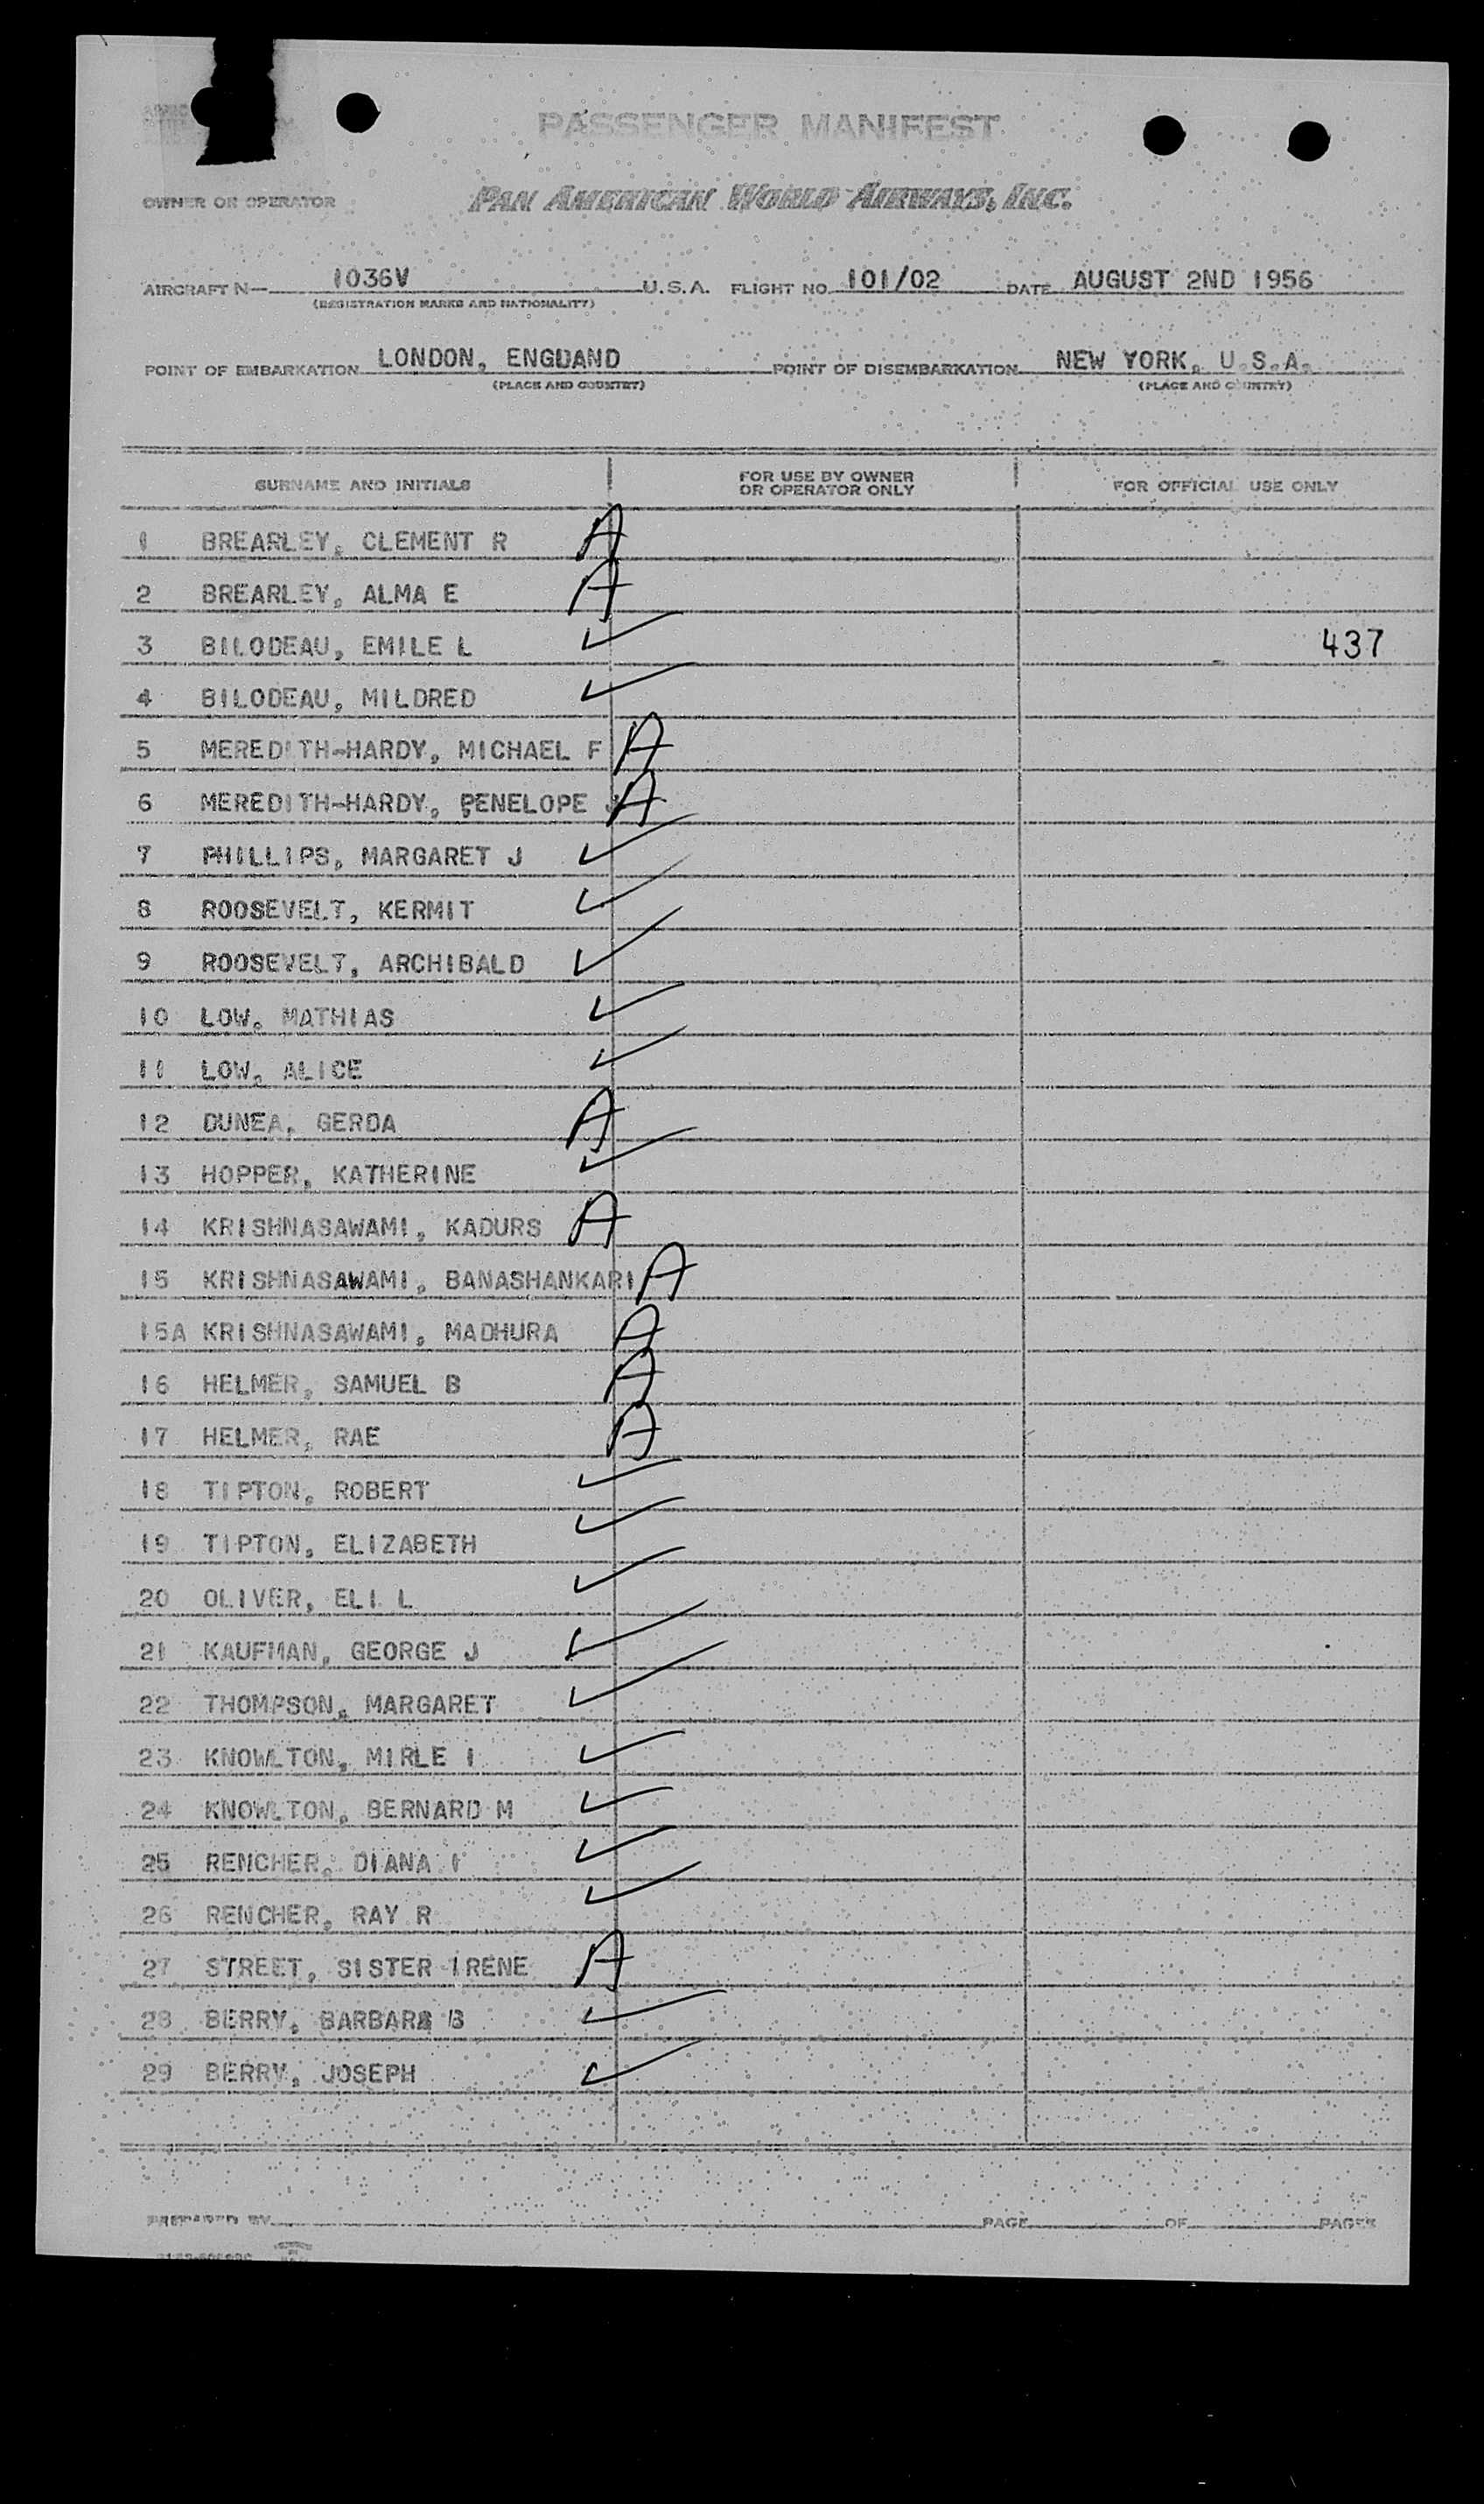 PASSENGER MANIFEST
OWNER OR OPERATOR PAN AMERICAN WORLD AIRWAYS, INC.
AIRCRAFT N— 1036V U.S.A. FLIGHT NO. 101/02 DATE AUGUST 2ND 1956
(REGISTRATION MARKS AND NATIONALITY)
POINT OF EMBARKATION LONDON, ENGDAND POINT OF DISEMBARKATION NEW YORK, U.S.A.
(PLACE AND COUNTRY) (PLACE AND COUNTRY)
SURNAME AND INITIALS FOR USE BY OWNER OR OPERATOR ONLY FOR OFFICIAL USE ONLY
1 BREARLEY, CLEMENT R A
2 BREARLEY, ALMA E A
3 BILODEAU, EMILE L ✓ 437
4 BILODEAU, MILDRED ✓
5 MEREDITH-HARDY, MICHAEL F A
6 MEREDITH-HARDY, PENELOPE J A
7 PHILLIPS, MARGARET J ✓
8 ROOSEVELT, KERMIT ✓
9 ROOSEVELT, ARCHIBALD ✓
10 LOW, MATHIAS ✓
11 LOW, ALICE ✓
12 DUNEA, GERDA A
13 HOPPER, KATHERINE ✓
14 KRISHNASAWAMI, KADURS A
15 KRISHNASAWAMI, BANASHANKARI A
15A KRISHNASAWAMI, MADHURA A
16 HELMER, SAMUEL B A
17 HELMER, RAE A
18 TIPTON, ROBERT ✓
19 TIPTON, ELIZABETH ✓
20 OLIVER, ELI L ✓
21 KAUFMAN, GEORGE J ✓
22 THOMPSON, MARGARET ✓
23 KNOWLTON, MIRLE I ✓
24 KNOWLTON, BERNARD M ✓
25 RENCHER, DIANA I ✓
26 RENCHER, RAY R ✓
27 STREET, SISTER IRENE A
28 BERRY, BARBARA B ✓
29 BERRY, JOSEPH ✓
PREPARED BY PAGE OF PAGES